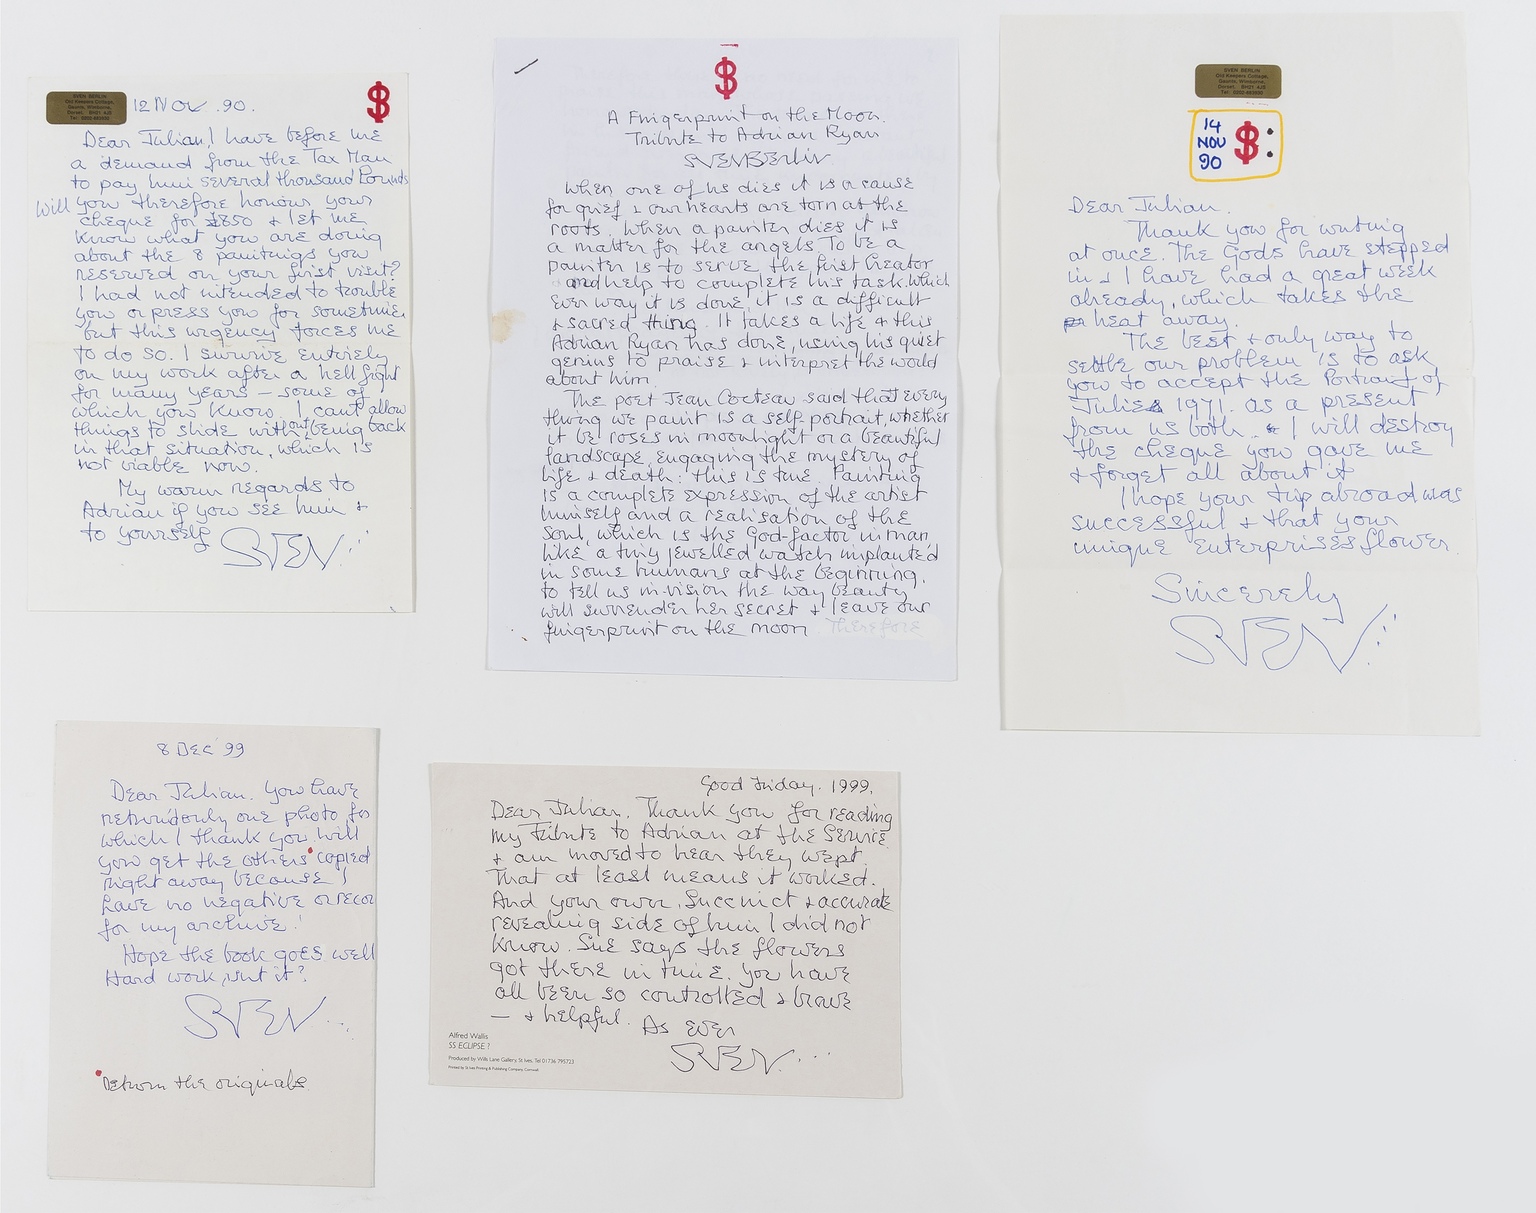 SVEN BERLIN
Old Keepers Cottage,
Gaunts, Wimborne,
Dorset. BH21 4JS
12 NOV .90.
Dear Julian, I have before me
a demand from the Tax Man
to pay him several thousand Pounds
Will you therefore honour your
cheque for £850 & let me
know what you are doing
about the 8 paintings you
reserved on your first visit?
I had not intended to trouble
you or press you for sometime,
but this urgency forces me
to do so. I survive entirely
on my work after a hell fight
for many years – some of
which you know. I cant allow
things to slide without being back
in that situation, which is
not viable now.
My warm regards to
Adrian if you see him &
to yourself
SVEN
A Fingerprint on the Moon.
Tribute to Adrian Ryan
SVEN Berlin
When one of us dies it is a cause
for grief & our hearts are torn at the
roots. When a painter dies it is
a matter for the angels To be a
painter is to serve the first Creator
and help to complete his task. Which
ever way it is done, it is a difficult
& sacred thing. It takes a life & this
Adrian Ryan has done, using his quiet
genius to praise & interpret the world
about him.
The poet Jean Cocteau said that every
thing we paint is a self portrait, whether
it be roses in moonlight or a beautiful
landscape, engaging the mystery of
life & death: this is true. Painting
is a complete expression of the artist
himself and a realisation of the
Soul, which is the God-factor in man
like a tiny jewelled watch implanted
in some humans at the beginning,
to tell us in-vision the way beauty
will surrender her secret & leave our
fingerprint on the moon. Therefore
SVEN BERLIN
Old Keepers Cottage,
Gaunts, Wimborne,
Dorset. BH21 4JS
14
NOV
90
Dear Julian.
Thank you for writing
at once. The Gods have stepped
in & I have had a great week
already, which takes the
heat away.
The best & only way to
settle our problem is to ask
you to accept the Portrait of
Julies 1971. as a present
from us both. & I will destroy
the cheque you gave me
& forget all about it
I hope your trip abroad was
successful & that your
unique Enterprises flower.
Sincerely
SVEN
8 DEC 99
Dear Julian. You have
return'd only one photo for
which I thank you. Will
you get the others copied
right away because I
have no negative or recor
for my archive!
Hope the book goes well
Hard work isnt it?
SVEN
Return the originals
Good Friday. 1999.
Dear Julian. Thank you for reading
my Tribute to Adrian at the Service
& am moved to hear they wept.
That at least means it worked.
And your own, Succinct & accurate
revealing side of him I did not
know. Sue says the flowers
got there in time. You have
all been so controlled & brave
– & helpful. As Ever
SVEN
Alfred Wallis
SS ECLIPSE ?
Produced by Wills Lane Gallery, St Ives, Tel 01736 795723
Printed by St Ives Printing & Publishing Company, Cornwall